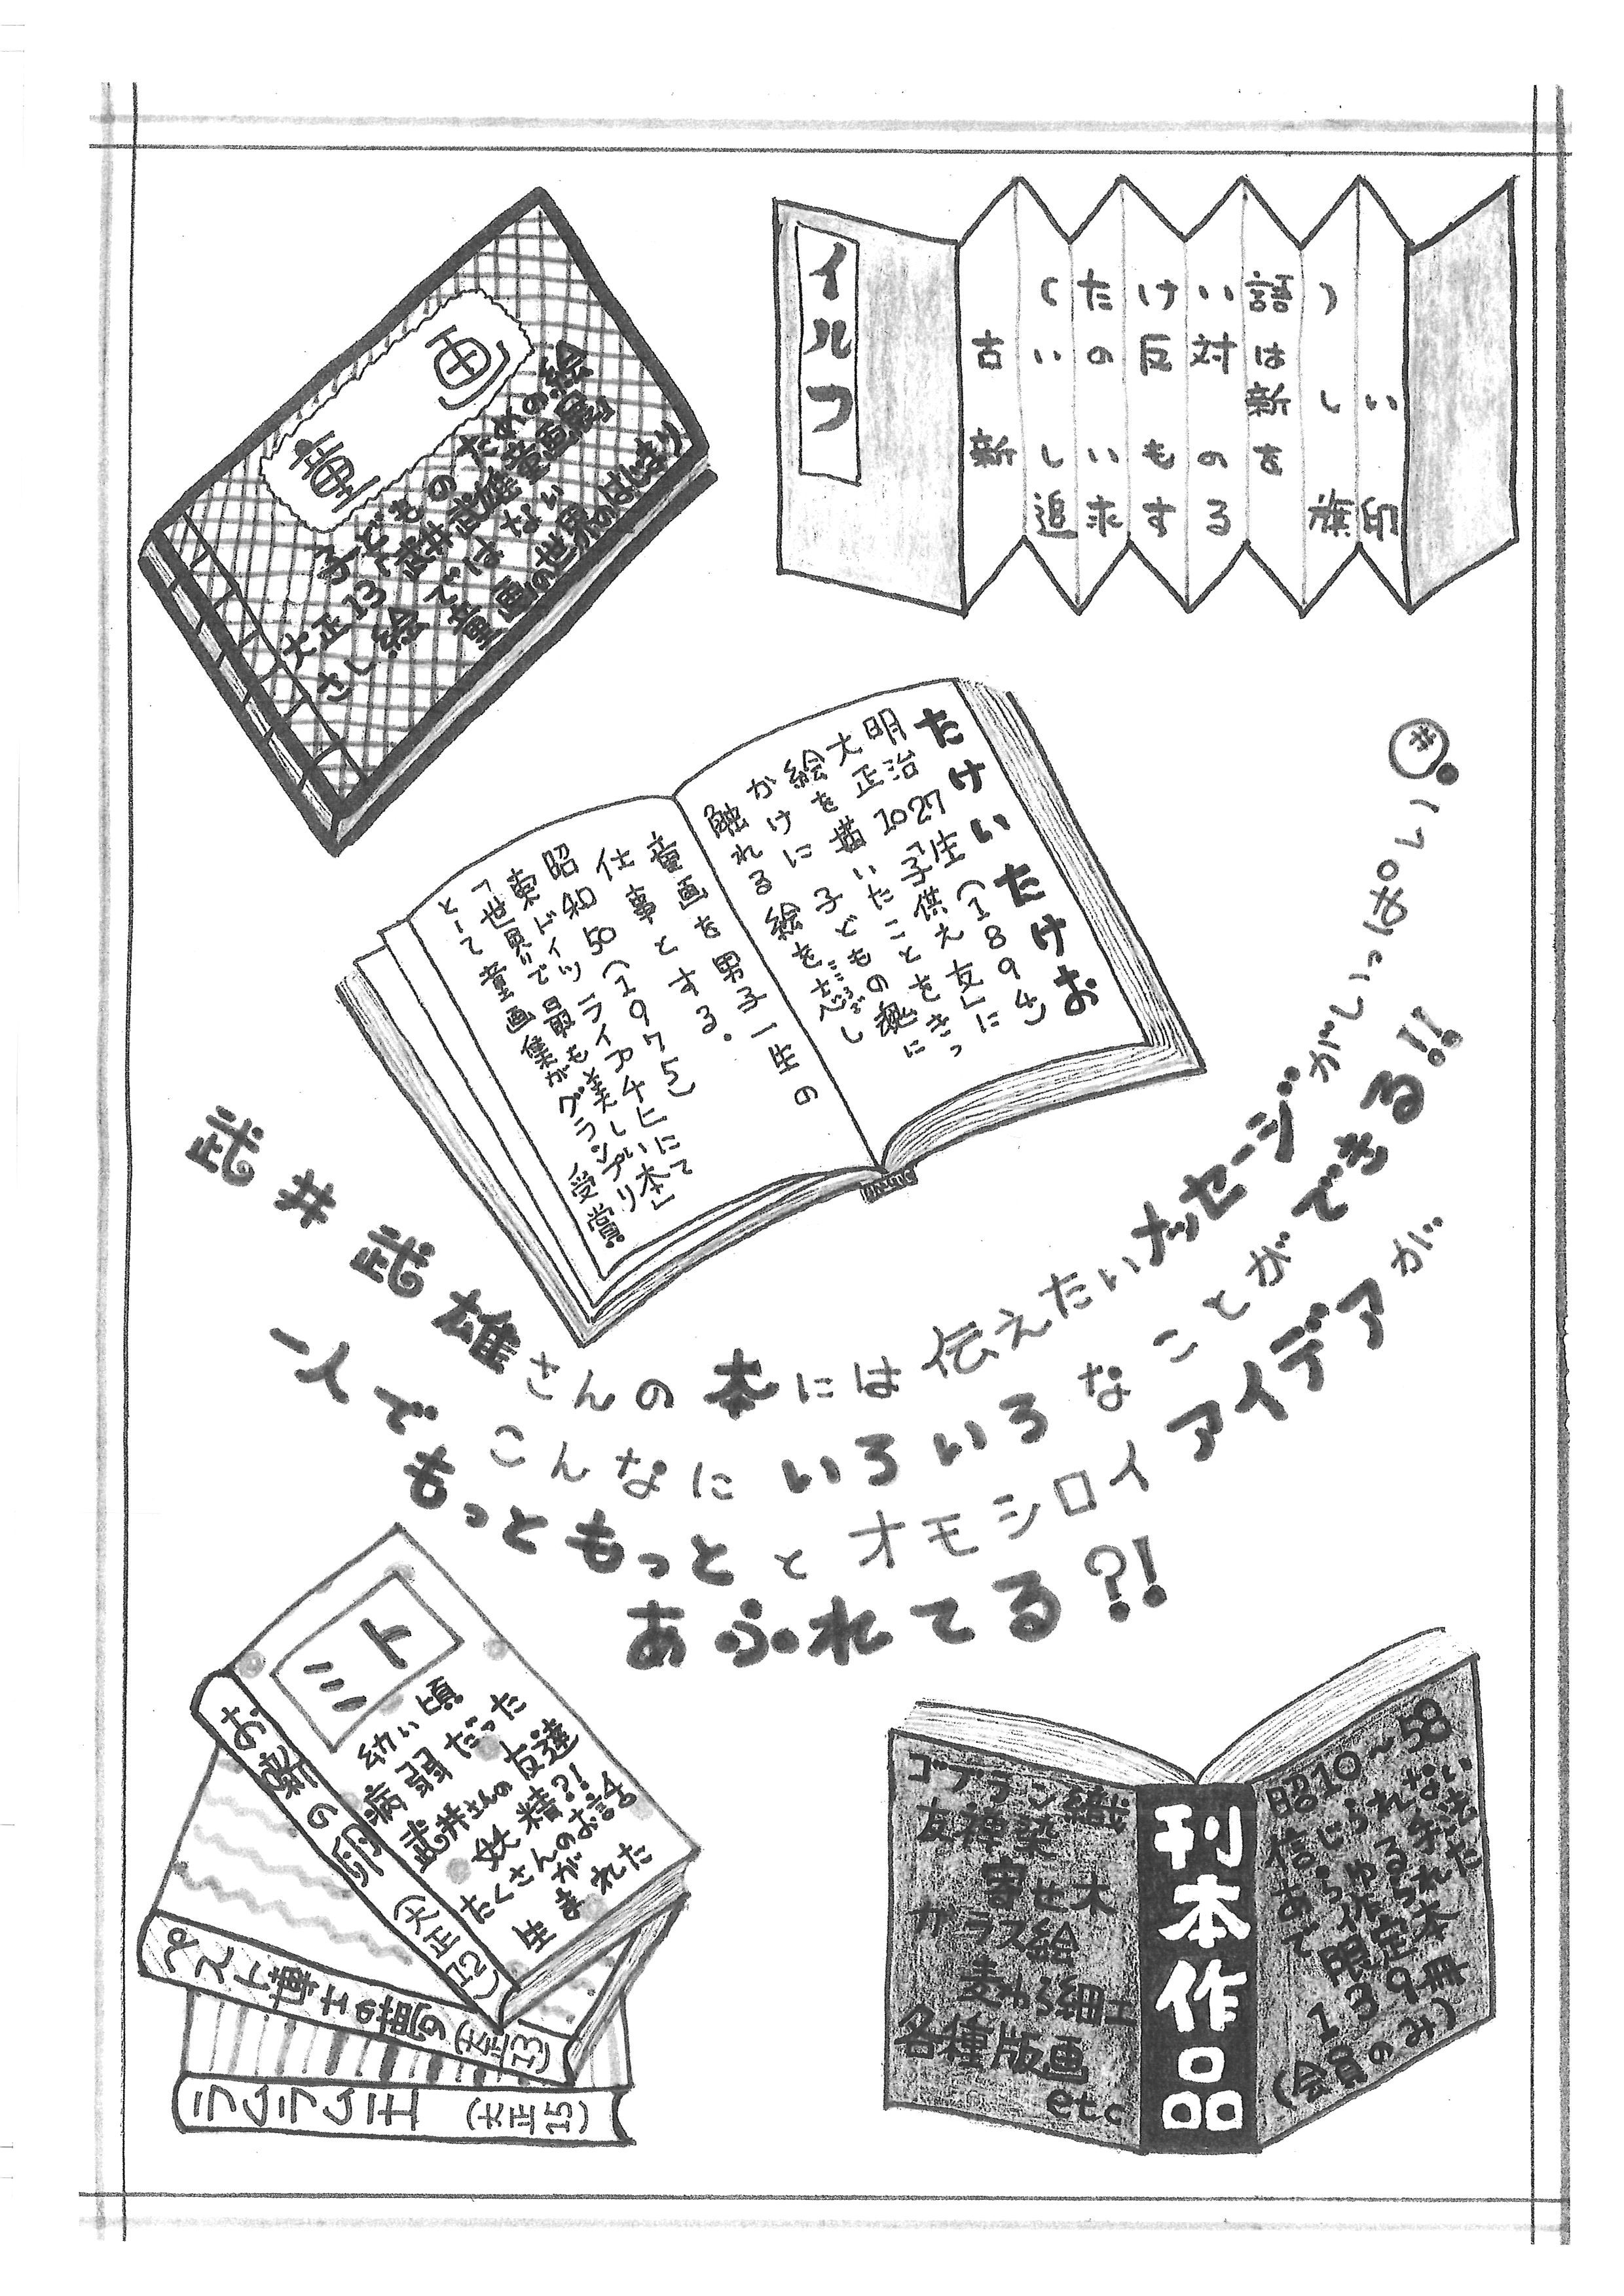 童画
子どものための絵
大正13「武井武雄童画展」
さし絵ではない
童画の世界のはじまり
イルフ
(たけい語)
古いの反対は
新しい
新しいものを
追求する 旗印
たけいたけお
明治27生(1894)
大正10「子供之友」に
絵を描いたことをきっ
かけに子どもの魂に
触れる絵を志ざし
童画を男子一生の
仕事とする。
昭和50(1975)
東ドイツライプチヒにて
「世界で最も美しい本」
として童画集がグランプリ
受賞
武井武雄さんの本には伝えたいメッセージがいっぱい!
一人でこんなにいろいろなことができる!!
もっともっととオモシロイアイデアが
あふれてる?!
ミト
幼い頃
病弱だった
武井さんの友達
妖精?!
たくさんのお話が
生まれた
お噺の卵 (大正12)
ペスト博士の夢 (大正13)
ラムラム王 (大正15)
ゴブラン織
友禅染
寄せ木
ガラス絵
麦わら細工
各種版画
etc
刊本作品
昭10~58
信じられない
あらゆる手法
で作られた
限定本
139冊
(会員のみ)